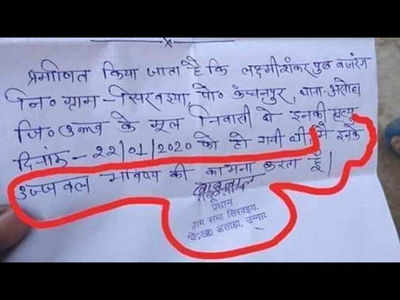 प्रमाणित किया जाता है कि लक्ष्मीशंकर पुत्र बजरंग
नि० ग्राम - सिरवइया, पो० कंचनपुर, थाना - असोहा
जि० उन्नाव के मूल निवासी थे इनकी मृत्यु
दिनांक - 22/01/2020 को हो गयी थी। मैं इनके
उज्जवल भविष्य की कामना करता हूँ।
प्रधान
ग्राम सभा सिरवइया,
असोहा, उन्नाव